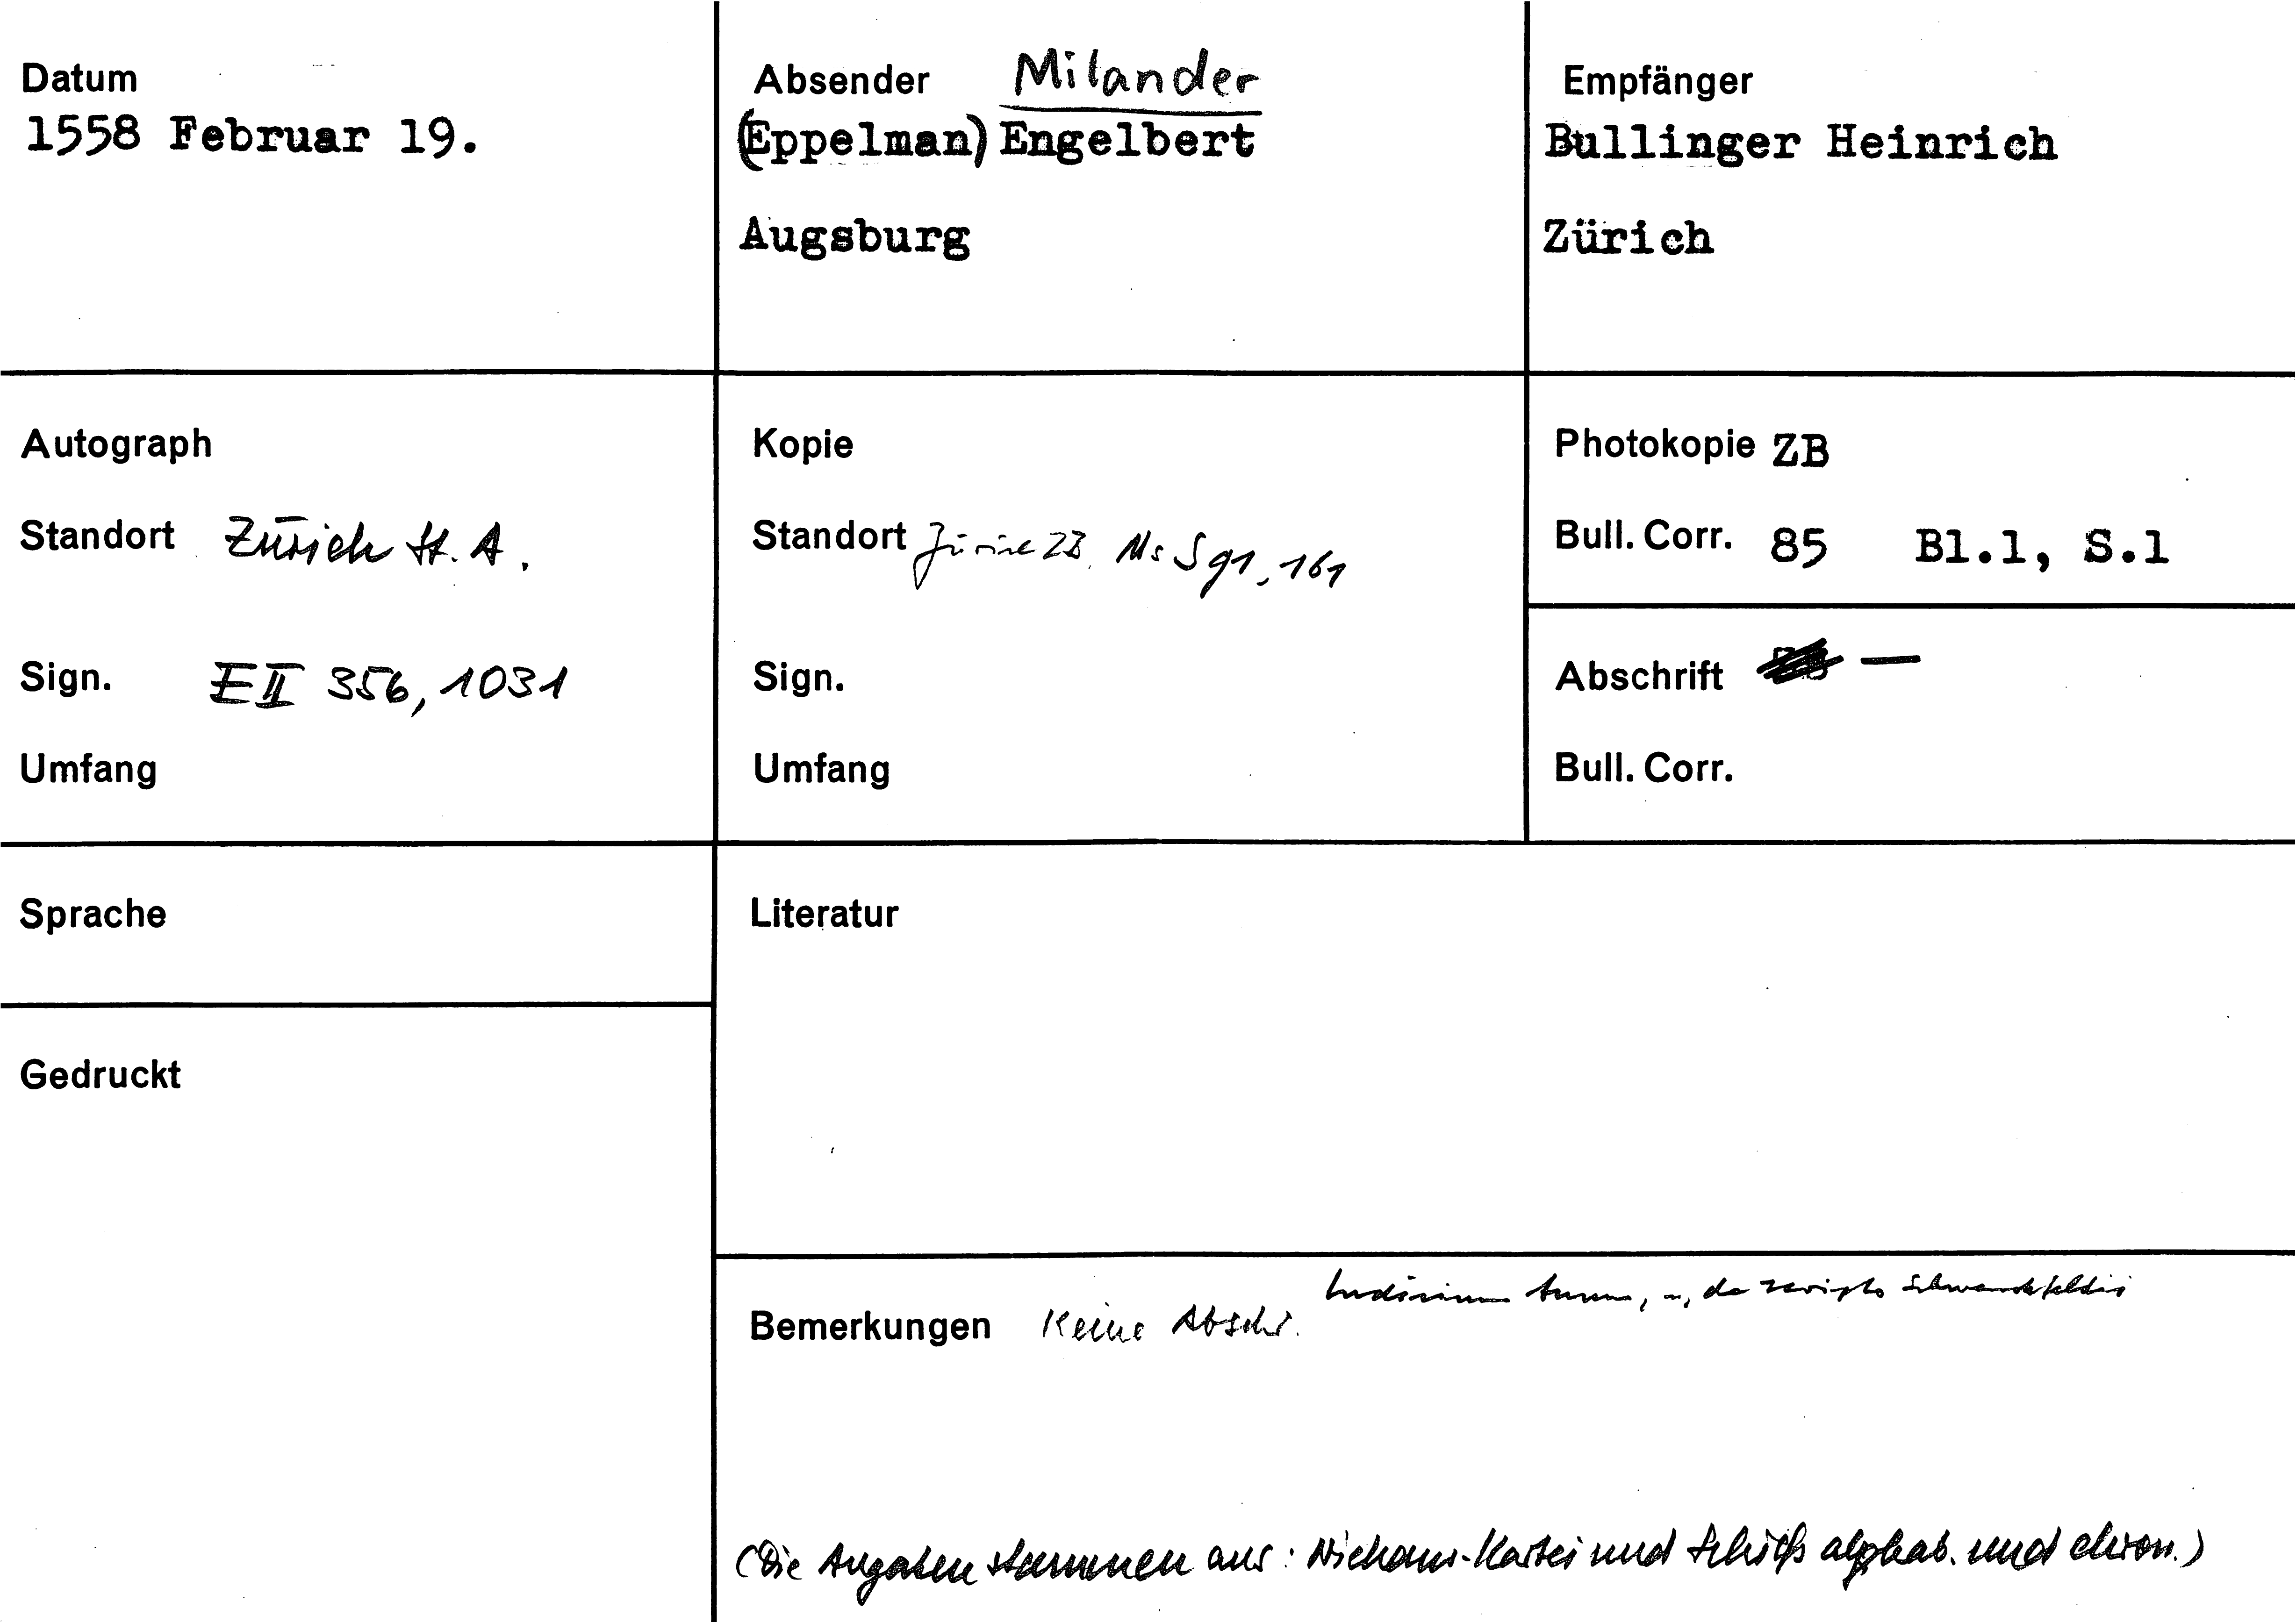 Datum
1558 Februar 19.
Absender Milander
(Eppelman) Engelbert
Augsburg
Empfänger
Bullinger Heinrich
Zürich
Autograph
Standort Zürich St. A.
Sign. E II 356, 1031
Umfang
Kopie
Standort Zürich ZB, Ms S 91, 161
Sign.
Umfang
Photokopie ZB
Bull. Corr. 85 Bl.1, S.1
Abschrift —
Bull. Corr.
Sprache
Gedruckt
Literatur
Bemerkungen Keine Abschr.
(Die Angaben stammen aus: Niehaus-Kartei und Schieß alphab. und chron.)